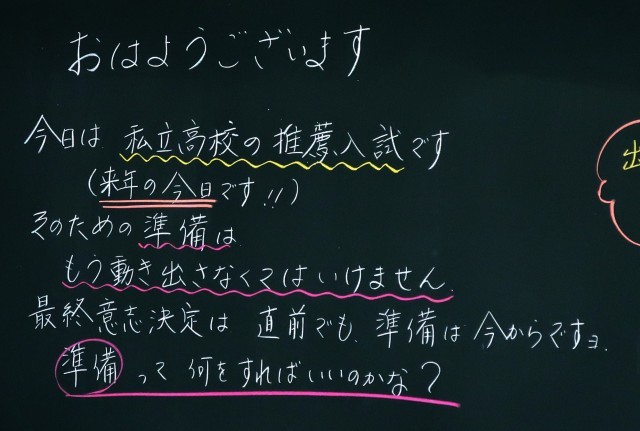 おはようございます
今日は 私立高校の推薦入試です
(来年の今日です!!)
そのための準備は
もう動き出さなくてはいけません.
最終意志決定は 直前でも、準備は今からですヨ.
準備って何をすればいいのかな?
出